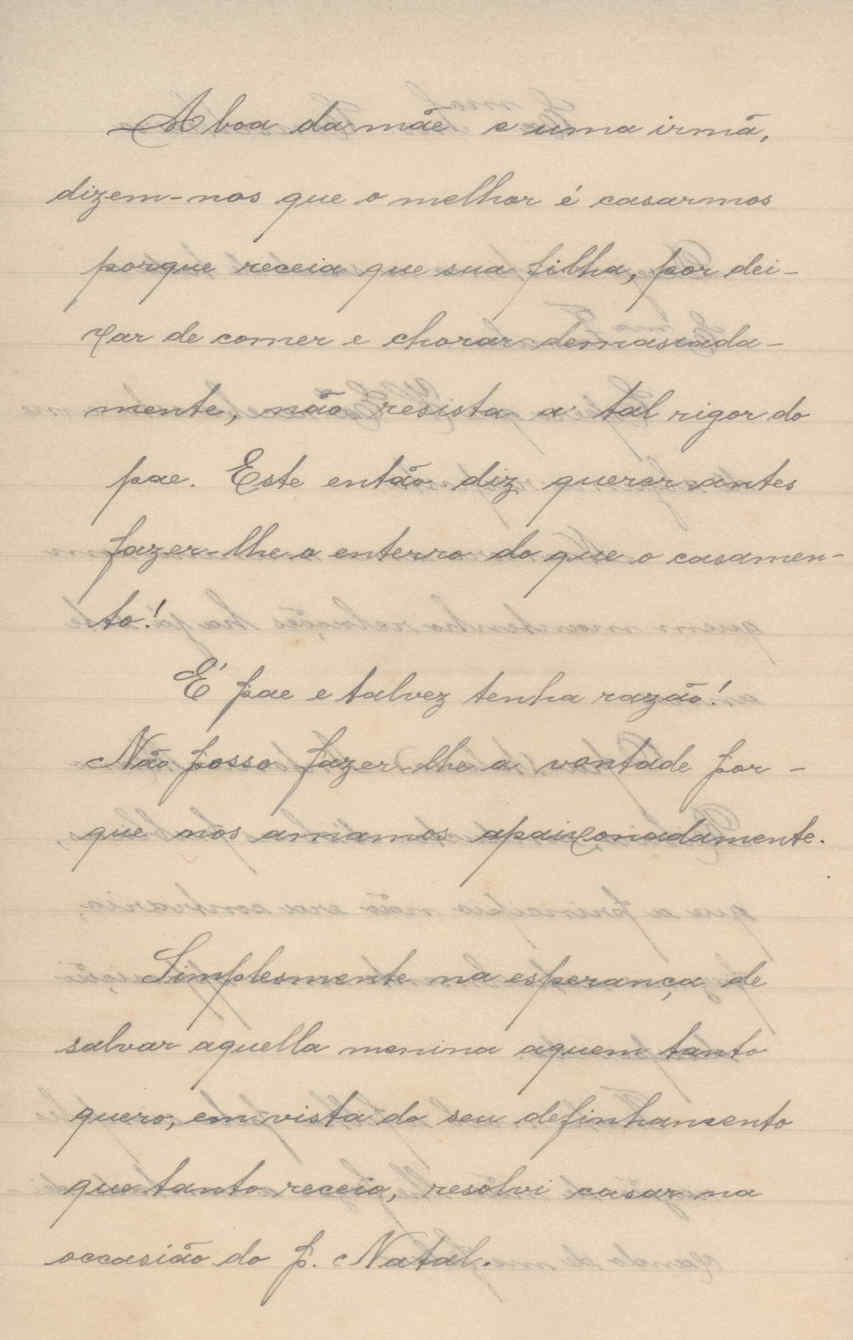 A boa da mãe e uma irmã,
dizem-nos que o melhor é casarmos
porque receia que sua filha, por dei-
xar de comer e chorar demasiada-
mente, não resista a tal rigor do
pae. Este então diz querer antes
fazer-lhe o enterro do que o casamen-
to!
É pae e talvez tenha razão!
Não posso fazer-lhe a vontade por-
que nos amamos apaixonadamente.
Simplesmente na esperança de
salvar aquella menina aquem tanto
quero, em vista do seu definhamento
que tanto receio, resolvi casar na
occasião do p. Natal.